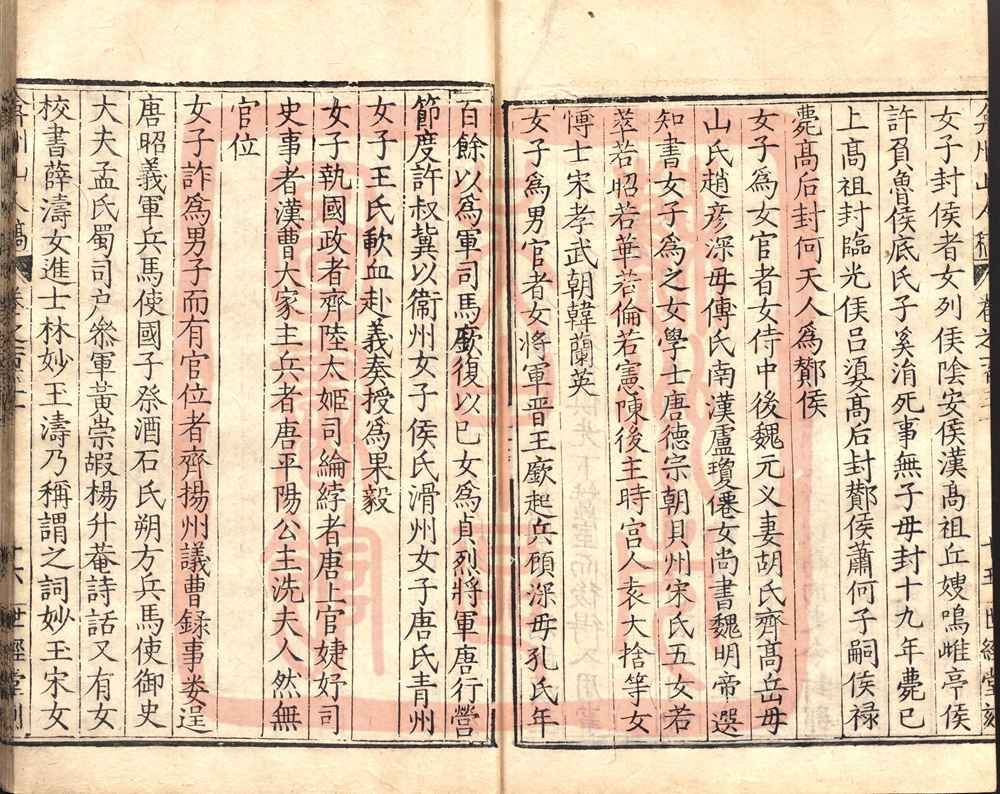 女子封侯者女列侯陰安侯漢高祖丘嫂鳴雌亭侯
許負魯侯底氏子奚涓死事無子母封十九年薨已
上高祖封臨光侯呂嬃高后封酇侯蕭何子嗣侯祿
薨高后封何夫人為酇侯
女子為女官者女侍中後魏元义妻胡氏齊高岳母
山氏趙彥深母傅氏南漢盧瓊僊女尚書魏明帝選
知書女子為之女學士唐德宗朝貝州宋氏五女若
莘若昭若華若倫若憲陳後主時宮人袁大捨等女
博士宋孝武朝韓蘭英
女子為男官者女將軍晉王廞起兵顧深母孔氏年
百餘以為軍司馬廞復以已女為貞烈將軍唐行營
節度許叔冀以衞州女子侯氏滑州女子唐氏青州
女子王氏歃血赴義奏授為果毅
女子執國政者齊陸太姬司綸綍者唐上官婕妤司
史事者漢曹大家主兵者唐平陽公主洗夫人然無
官位
女子詐為男子而有官位者齊揚州議曹錄事婁逞
唐昭義軍兵馬使國子祭酒石氏朔方兵馬使御史
大夫孟氏蜀司戶參軍黃崇嘏楊升菴詩話又有女
校書薛濤女進士林妙玉濤乃稱謂之詞妙玉宋女
十六 世經堂刻